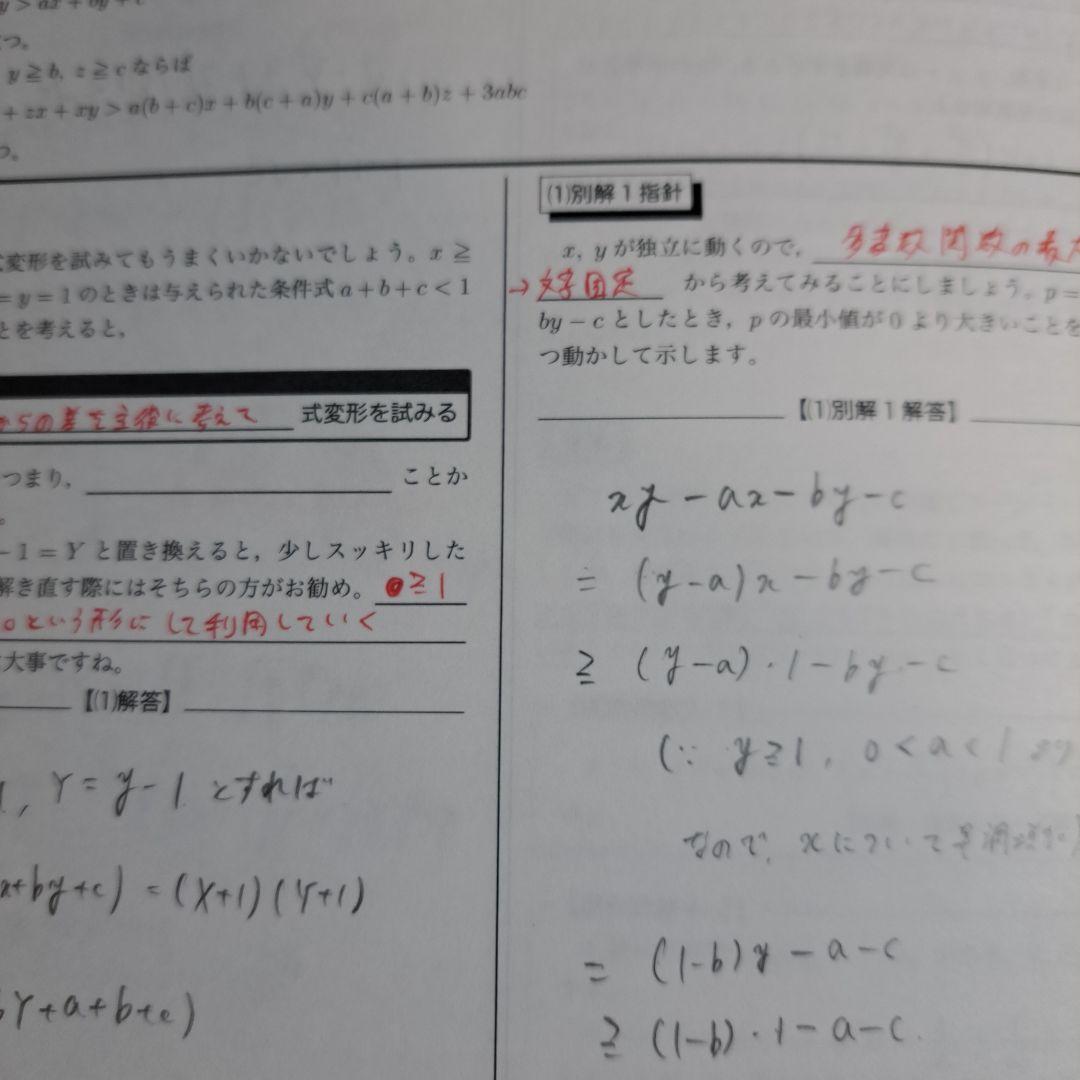 y > ax + by + c
つ。
y ≧ b, z ≧ c ならば
+ zx + xy > a(b + c)x + b(c + a)y + c(a + b)z + 3abc
つ。
式変形を試みてもうまくいかないでしょう。x ≧
= y = 1 のときは与えられた条件式 a + b + c < 1
とを考えると,
からの差を主役に考えて 式変形を試みる
つまり, ことか
。
- 1 = Y と置き換えると,少しスッキリした
解き直す際にはそちらの方がお勧め。 ≧ 1
0という形にして利用していく
大事ですね。
【(1)解答】
, Y = y - 1 とすれば
ax + by + c) = (X+1)(Y+1)
bY + a + b + c)
(1)別解 1 指針
x, y が独立に動くので, 多変数関数の最大
→ 文字固定 から考えてみることにしましょう。p =
by - c としたとき,p の最小値が 0 より大きいことを
つ動かして示します。
【(1)別解 1 解答】
xy - ax - by - c
= (y - a)x - by - c
≧ (y - a)・1 - by - c
(∵ y ≧ 1, 0 < a < 1 より
なので, xについて単調増加)
= (1-b)y - a - c
≧ (1-b)・1 - a - c